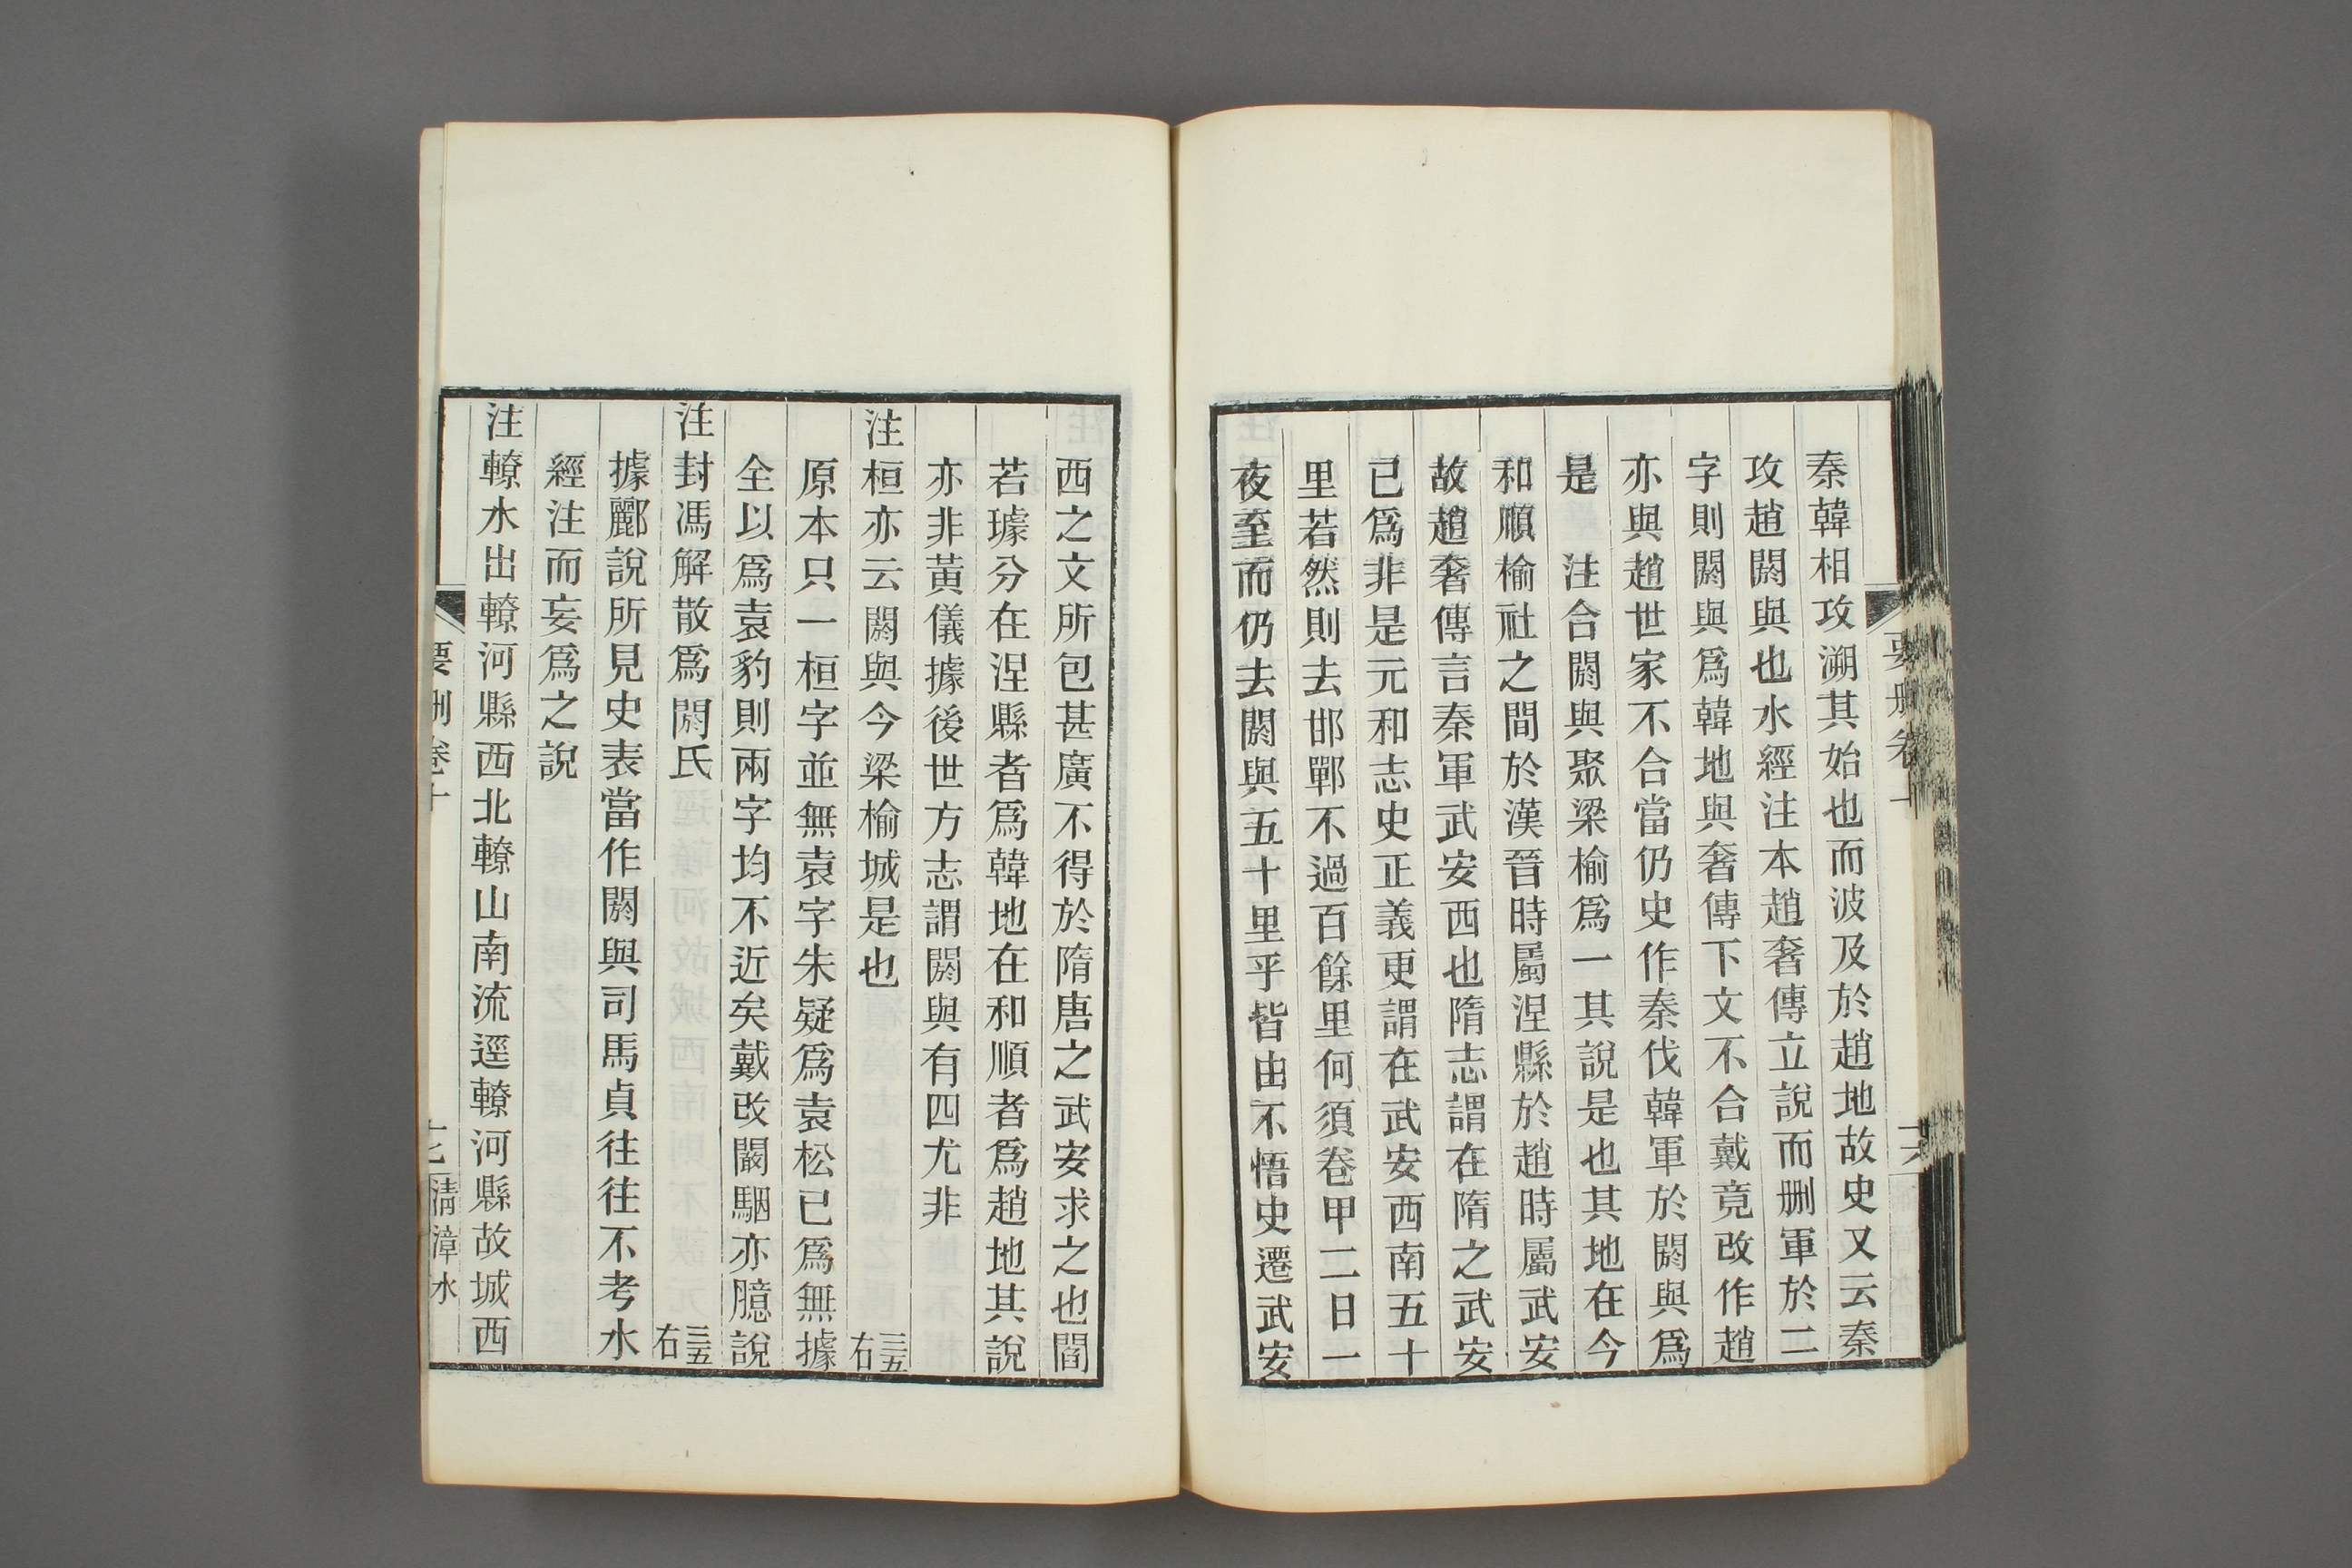 秦韓相攻溯其始也而波及於趙地故史又云秦
攻趙閼與也水經注本趙奢傳立說而刪軍於二
字則閼與爲韓地與奢傳下文不合戴竟改作趙
亦與趙世家不合當仍史作秦伐韓軍於閼與爲
是　注合閼與聚梁榆爲一其說是也其地在今
和順榆社之間於漢晉時屬涅縣於趙時屬武安
故趙奢傳言秦軍武安西也隋志謂在隋之武安
已爲非是元和志史正義更謂在武安西南五十
里若然則去邯鄲不過百餘里何須卷甲二日一
夜至而仍去閼與五十里乎皆由不悟史遷武安
要刪卷十
十六
西之文所包甚廣不得於隋唐之武安求之也閻
若璩分在涅縣者爲韓地在和順者爲趙地其說
亦非黃儀據後世方志謂閼與有四尤非
注桓亦云閼與今梁榆城是也　三五右
原本只一桓字並無袁字朱疑爲袁松已爲無據
全以爲袁豹則兩字均不近矣戴改闞駰亦臆說
注封馮解散爲閼氏　三五右
據酈說所見史表當作閼與司馬貞往往不考水
經注而妄爲之說
注轑水出轑河縣西北轑山南流逕轑河縣故城西
要刪卷十
十七
清漳水